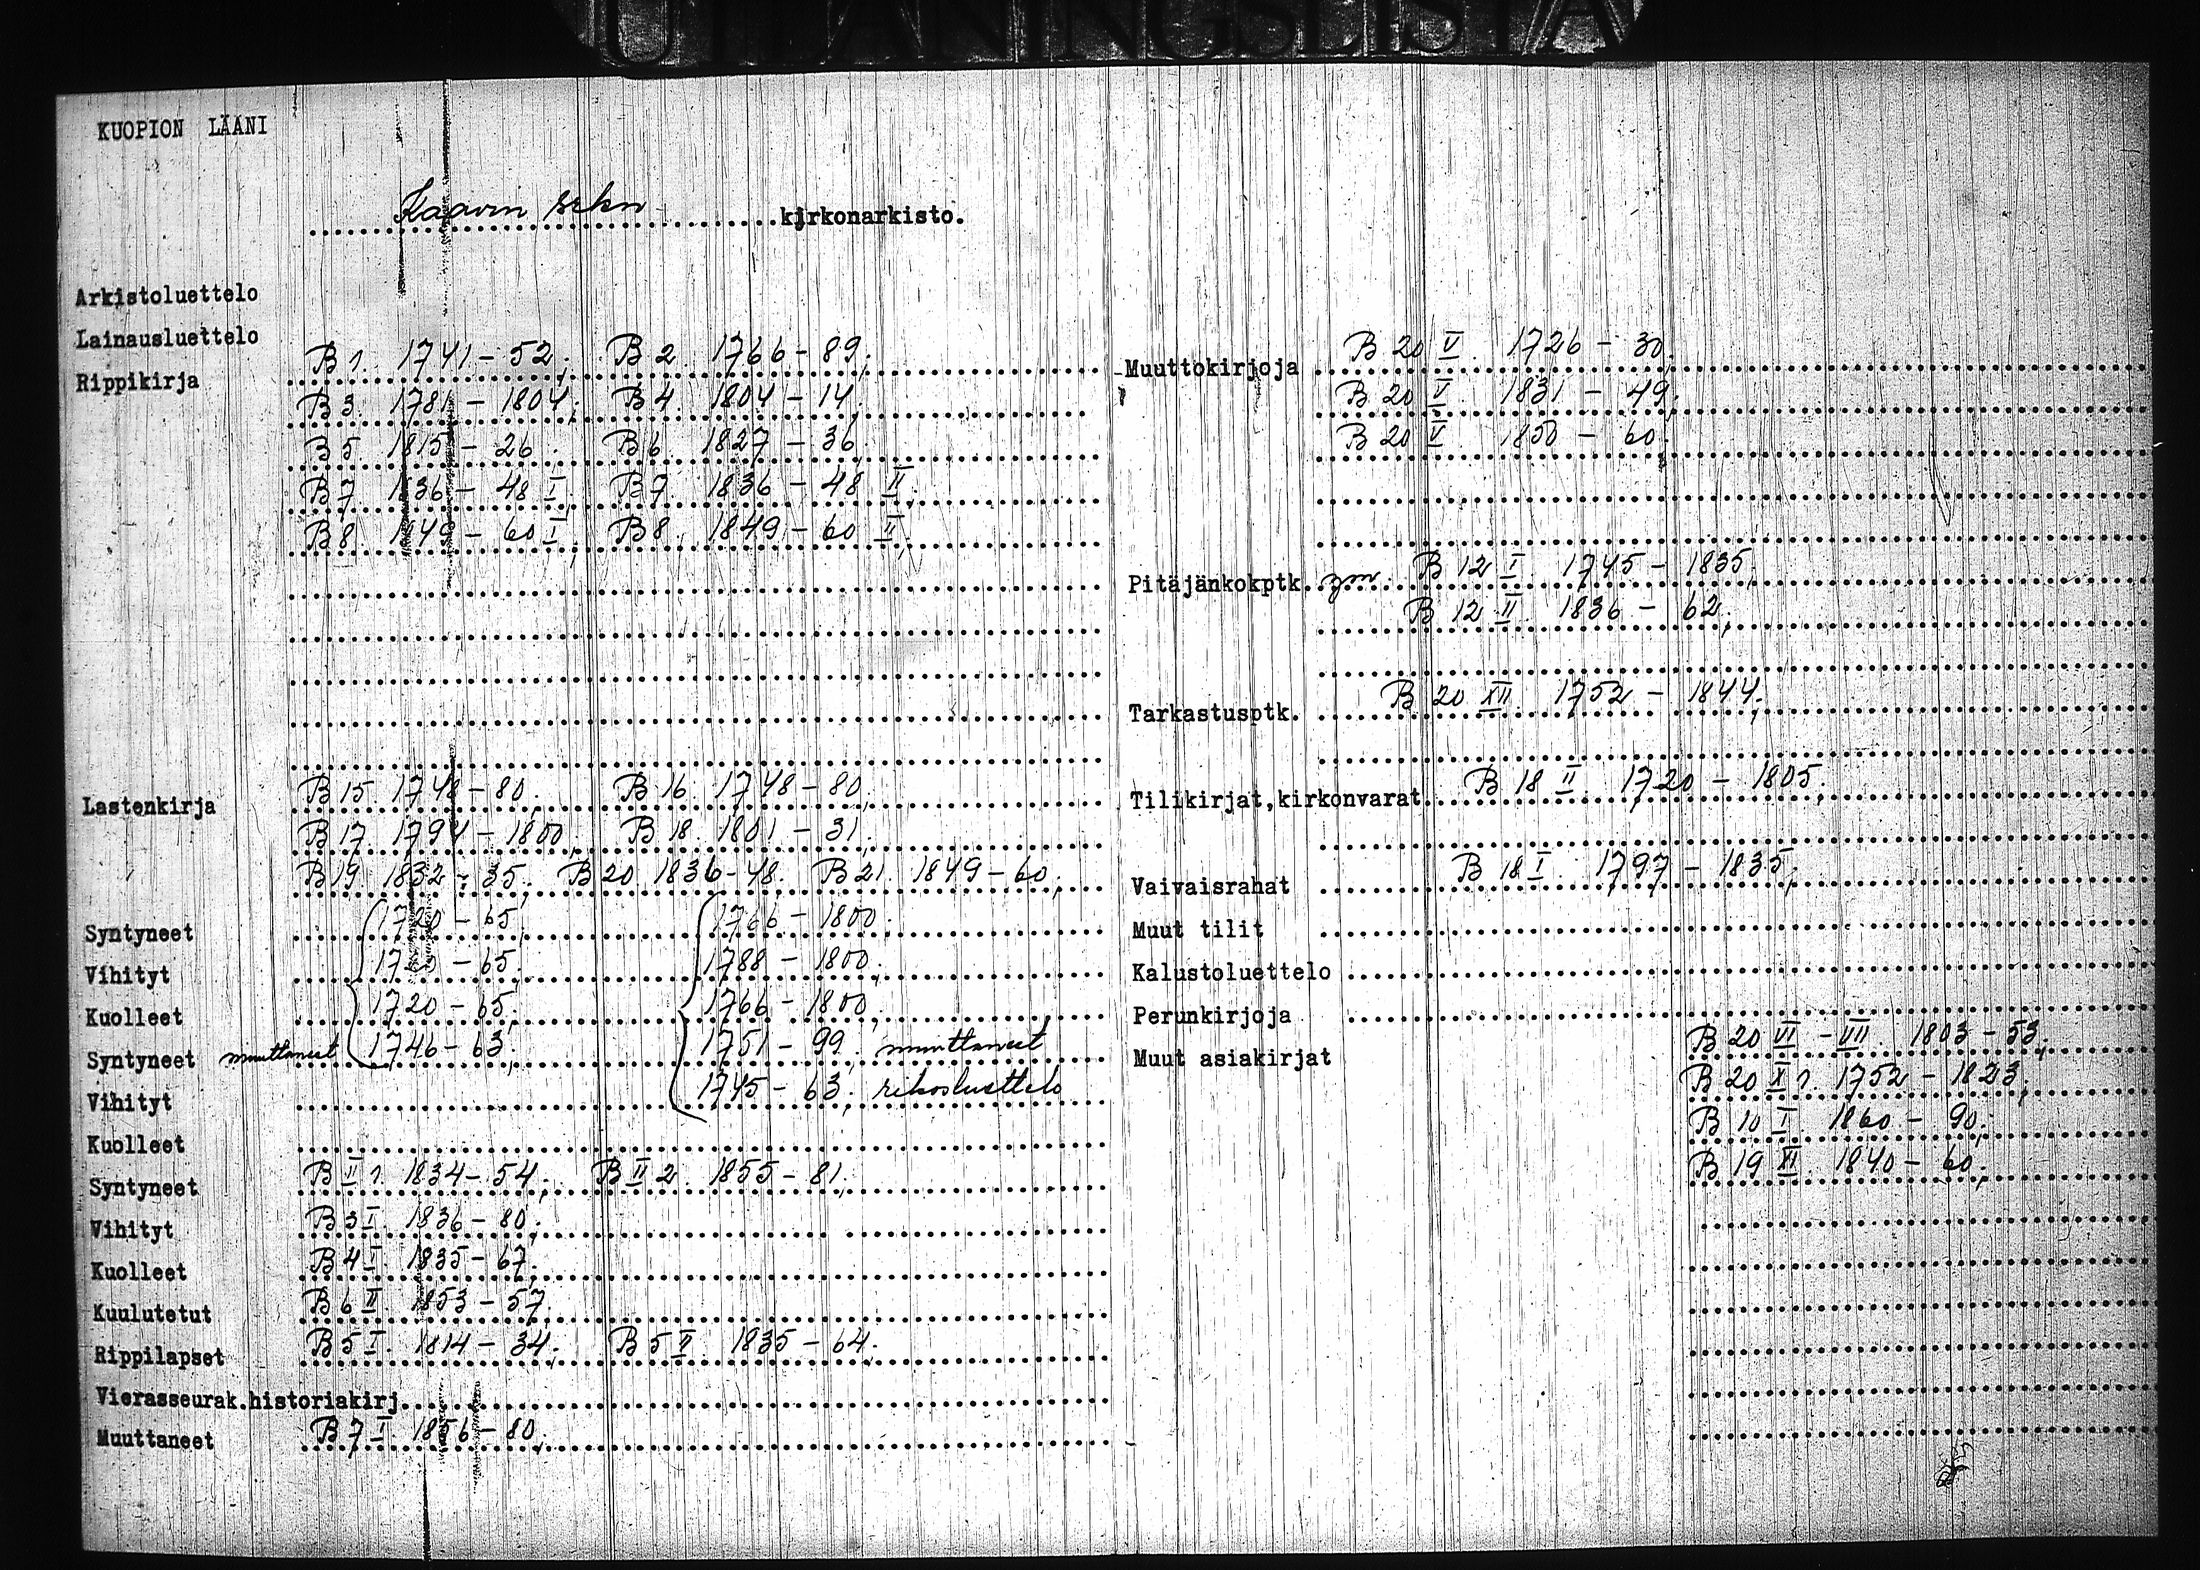 UTLÅNINGSLISTA
KUOPION LÄÄNI
Kaavin srkn kirkonarkisto.
Arkistoluettelo
Lainausluettelo
Rippikirja B 1. 1741-52; B 2 1766-89;
B 3. 1781-1804; B 4. 1804-14;
B 5. 1815-26. B 6. 1827-36;
B 7. 1836-48 I; B 7. 1836-48 II;
B 8. 1849-60 I; B 8. 1849-60 II;
Lastenkirja B 15 1748-80; B 16. 1748-80;
B 17. 1794-1800; B 18. 1801-31;
B 19 1832-35; B 20 1836-48. B 21. 1849-60;
Syntyneet 1720-65; 1766-1800;
Vihityt 1720-65; 1788-1800;
Kuolleet 1720-65; 1766-1800;
Syntyneet muuttaneet 1746-63; 1751-99; muuttaneet
Vihityt 1745-63; rikosluettelo
Kuolleet
Syntyneet B II 1. 1834-54; B II 2 1855-81;
Vihityt B 3 I. 1836-80;
Kuolleet B 4 I. 1835-67;
Kuulutetut B 6 II. 1853-57.
Rippilapset B 5 I. 1814-34; B 5 II. 1835-64;
Vierasseurak.historiakirj.
Muuttaneet B 7 I 1856-80;
Muuttokirjoja B 20 V. 1726-30;
B 20 V. 1831-49;
B 20 V. 1850-60.
Pitäjänkokptk. ym. B 12 I. 1745-1835;
B 12 II. 1836-62;
Tarkastusptk. B 20 XII. 1752-1844;
Tilikirjat,kirkonvarat. B 18 II. 1720-1805;
Vaivaisrahat B 18 I. 1797-1835;
Muut tilit
Kalustoluettelo
Perunkirjoja
Muut asiakirjat B 20 VI-VII. 1803-53;
B 20 X 1. 1752-1823;
B 10 I. 1860-90;
B 19 XI. 1840-60;